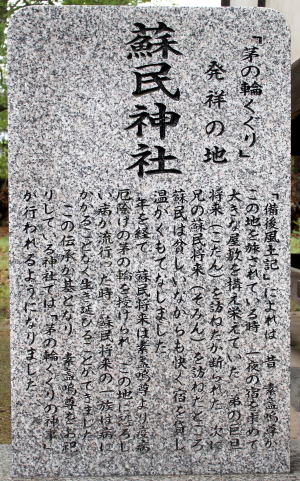 「茅の輪くぐり」
発祥の地
蘇民神社
「備後風土記」によれば 昔 素盞嗚尊が
この地を旅されている時 一夜の宿を求めて
大きな屋敷を構え栄えていた 弟の巨旦
将来(こたん)を訪ねたが断られた 次に
兄の蘇民将来(そみん)を訪ねたところ
蘇民は貧しいながらも快く宿を貸し
温かくもてなしました
年を経て 蘇民将来は素盞嗚尊より疫病
厄除けの茅の輪を授けられ この地に恐ろし
い病が流行った時 蘇民将来の一族は病に
かかることなく生き延びることができました
この伝承が基となり 素盞嗚尊をお祀
りしている神社では「茅の輪くぐりの神事」
が行われるようになりました